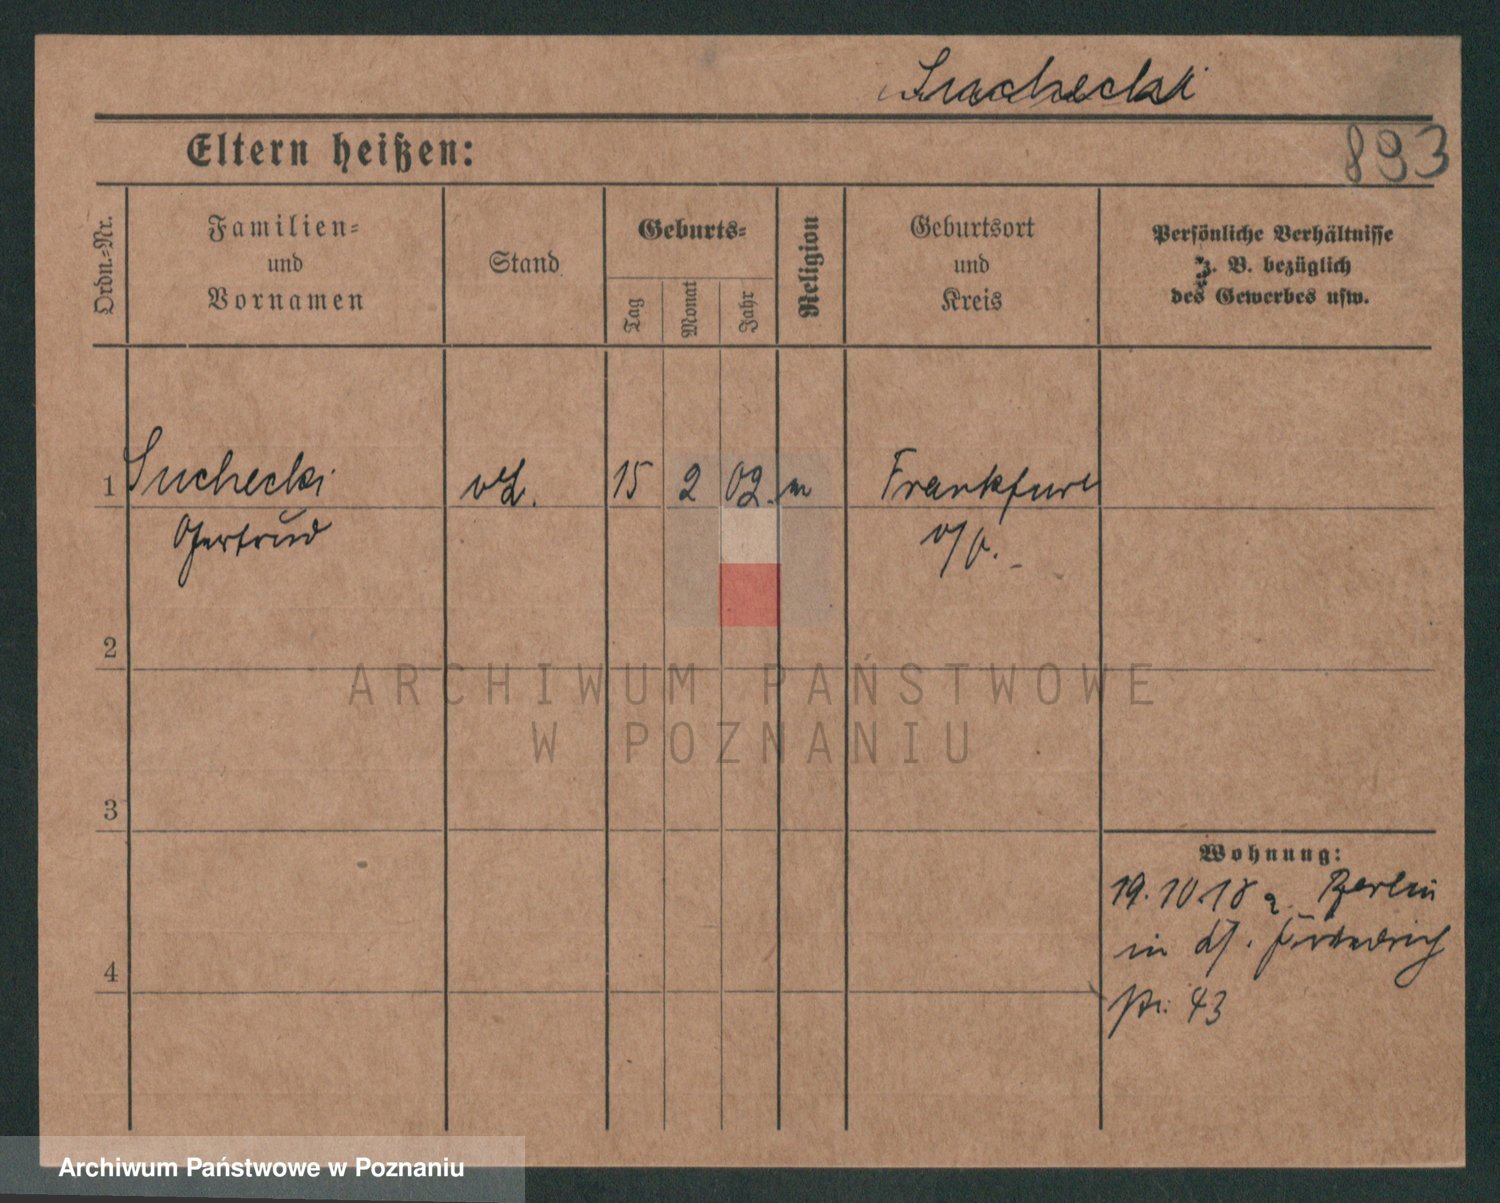 Suchecki
893
Eltern heißen:
Ordn.-Nr.
Familien-
und
Vornamen
Stand
Geburts-
Tag
Monat
Jahr
Religion
Geburtsort
und
Kreis
Persönliche Verhältnisse
z. B. bezüglich
des Gewerbes usw.
1 Suchecki 15 2 02. Frankfurt
Gertrud
2
3
4
Wohnung:
19.10.18 Berlin
in
43
ARCHIWUM PAŃSTWOWE
W POZNANIU
Archiwum Państwowe w Poznaniu